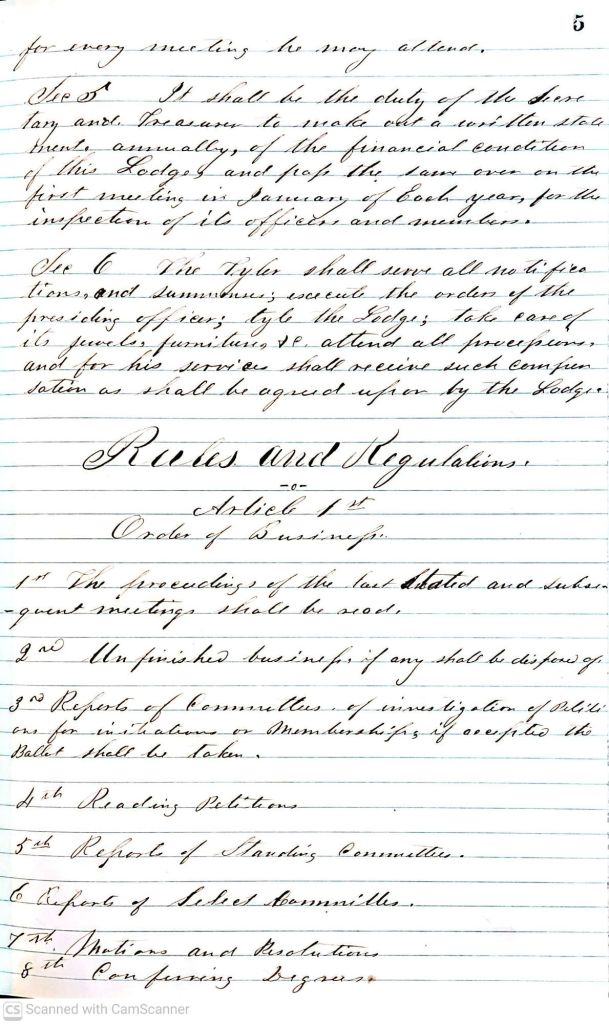 5
for every meeting he may attend.
Sec 5 It shall be the duty of the Secre
tary and Treasurer to make out a written state
ment, annually, of the financial condition
of this Lodge, and pass the same over on the
first meeting in January of Each year, for the
inspection of its officers and members.
Sec 6 The Tyler shall serve all notifica
tions, and summonses; execute the orders of the
presiding officer; tyle the Lodge; take care of
its jewels, furniture, &c. attend all processions,
and for his services shall receive such compen
sation as shall be agreed upon by the Lodge.
Rules and Regulations.
-o-
Article 1st
Order of Business.
1st The proceedings of the last Stated and subse
-quent meetings shall be read.
2nd Unfinished business, if any shall be disposed of.
3rd Reports of Committees of investigation of Petiti
ons for initiations or Memberships, if accepted the
Ballot shall be taken.
4th Reading Petitions
5th Reports of Standing Committees.
6 Reports of Select Committees.
7th. Motions and Resolutions
8th Conferring Degrees.
CS Scanned with CamScanner